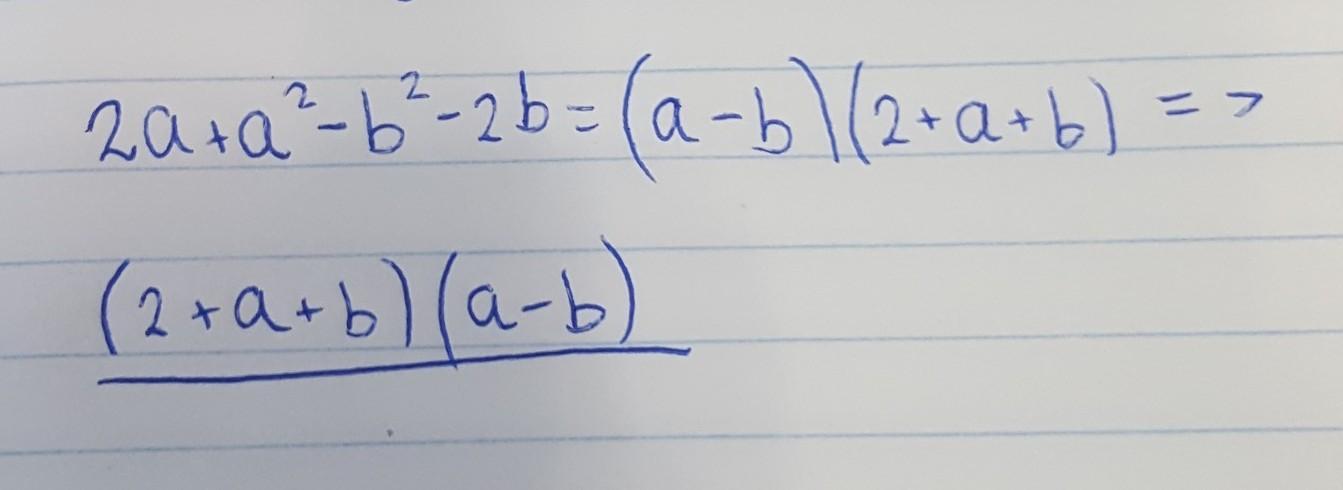 2a+a²-b²-2b=(a-b)(2+a+b) =>
(2+a+b)(a-b)